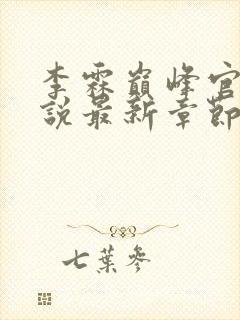 李霖巔峰官
說最新章節
七葉參